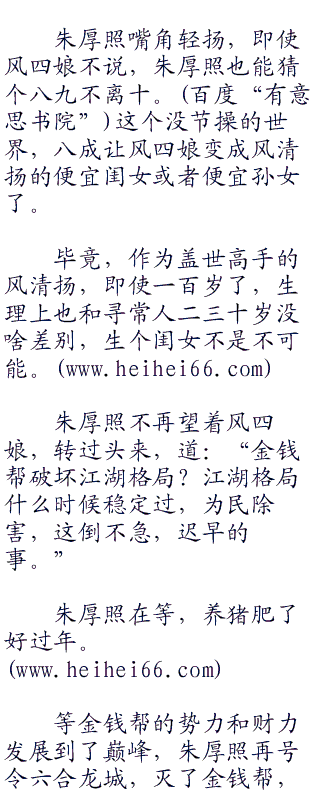 朱厚照嘴角轻扬，即使
风四娘不说，朱厚照也能猜
个八九不离十。(百度“有意
思书院”)这个没节操的世
界，八成让风四娘变成风清
扬的便宜闺女或者便宜孙女
了。
毕竟，作为盖世高手的
风清扬，即使一百岁了，生
理上也和寻常人二三十岁没
啥差别，生个闺女不是不可
能。(www.heihei66.com)
朱厚照不再望着风四
娘，转过头来，道：“金钱
帮破坏江湖格局？江湖格局
什么时候稳定过，为民除
害，这倒不急，迟早的
事。”
朱厚照在等，养猪肥了
好过年。
(www.heihei66.com)
等金钱帮的势力和财力
发展到了巅峰，朱厚照再号
令六合龙城，灭了金钱帮，